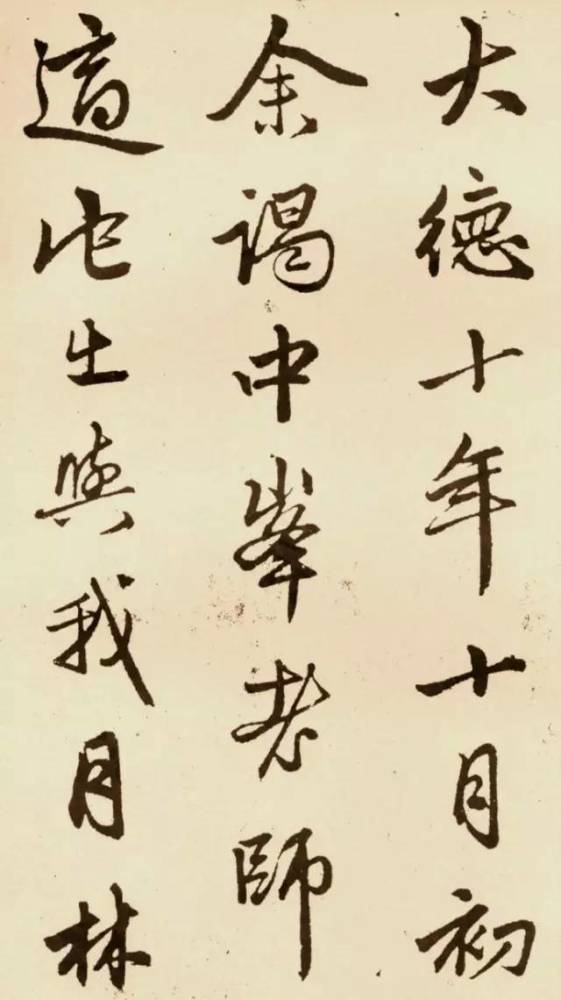 大德十年十月初
余謁中峯老師
適他出與我月林